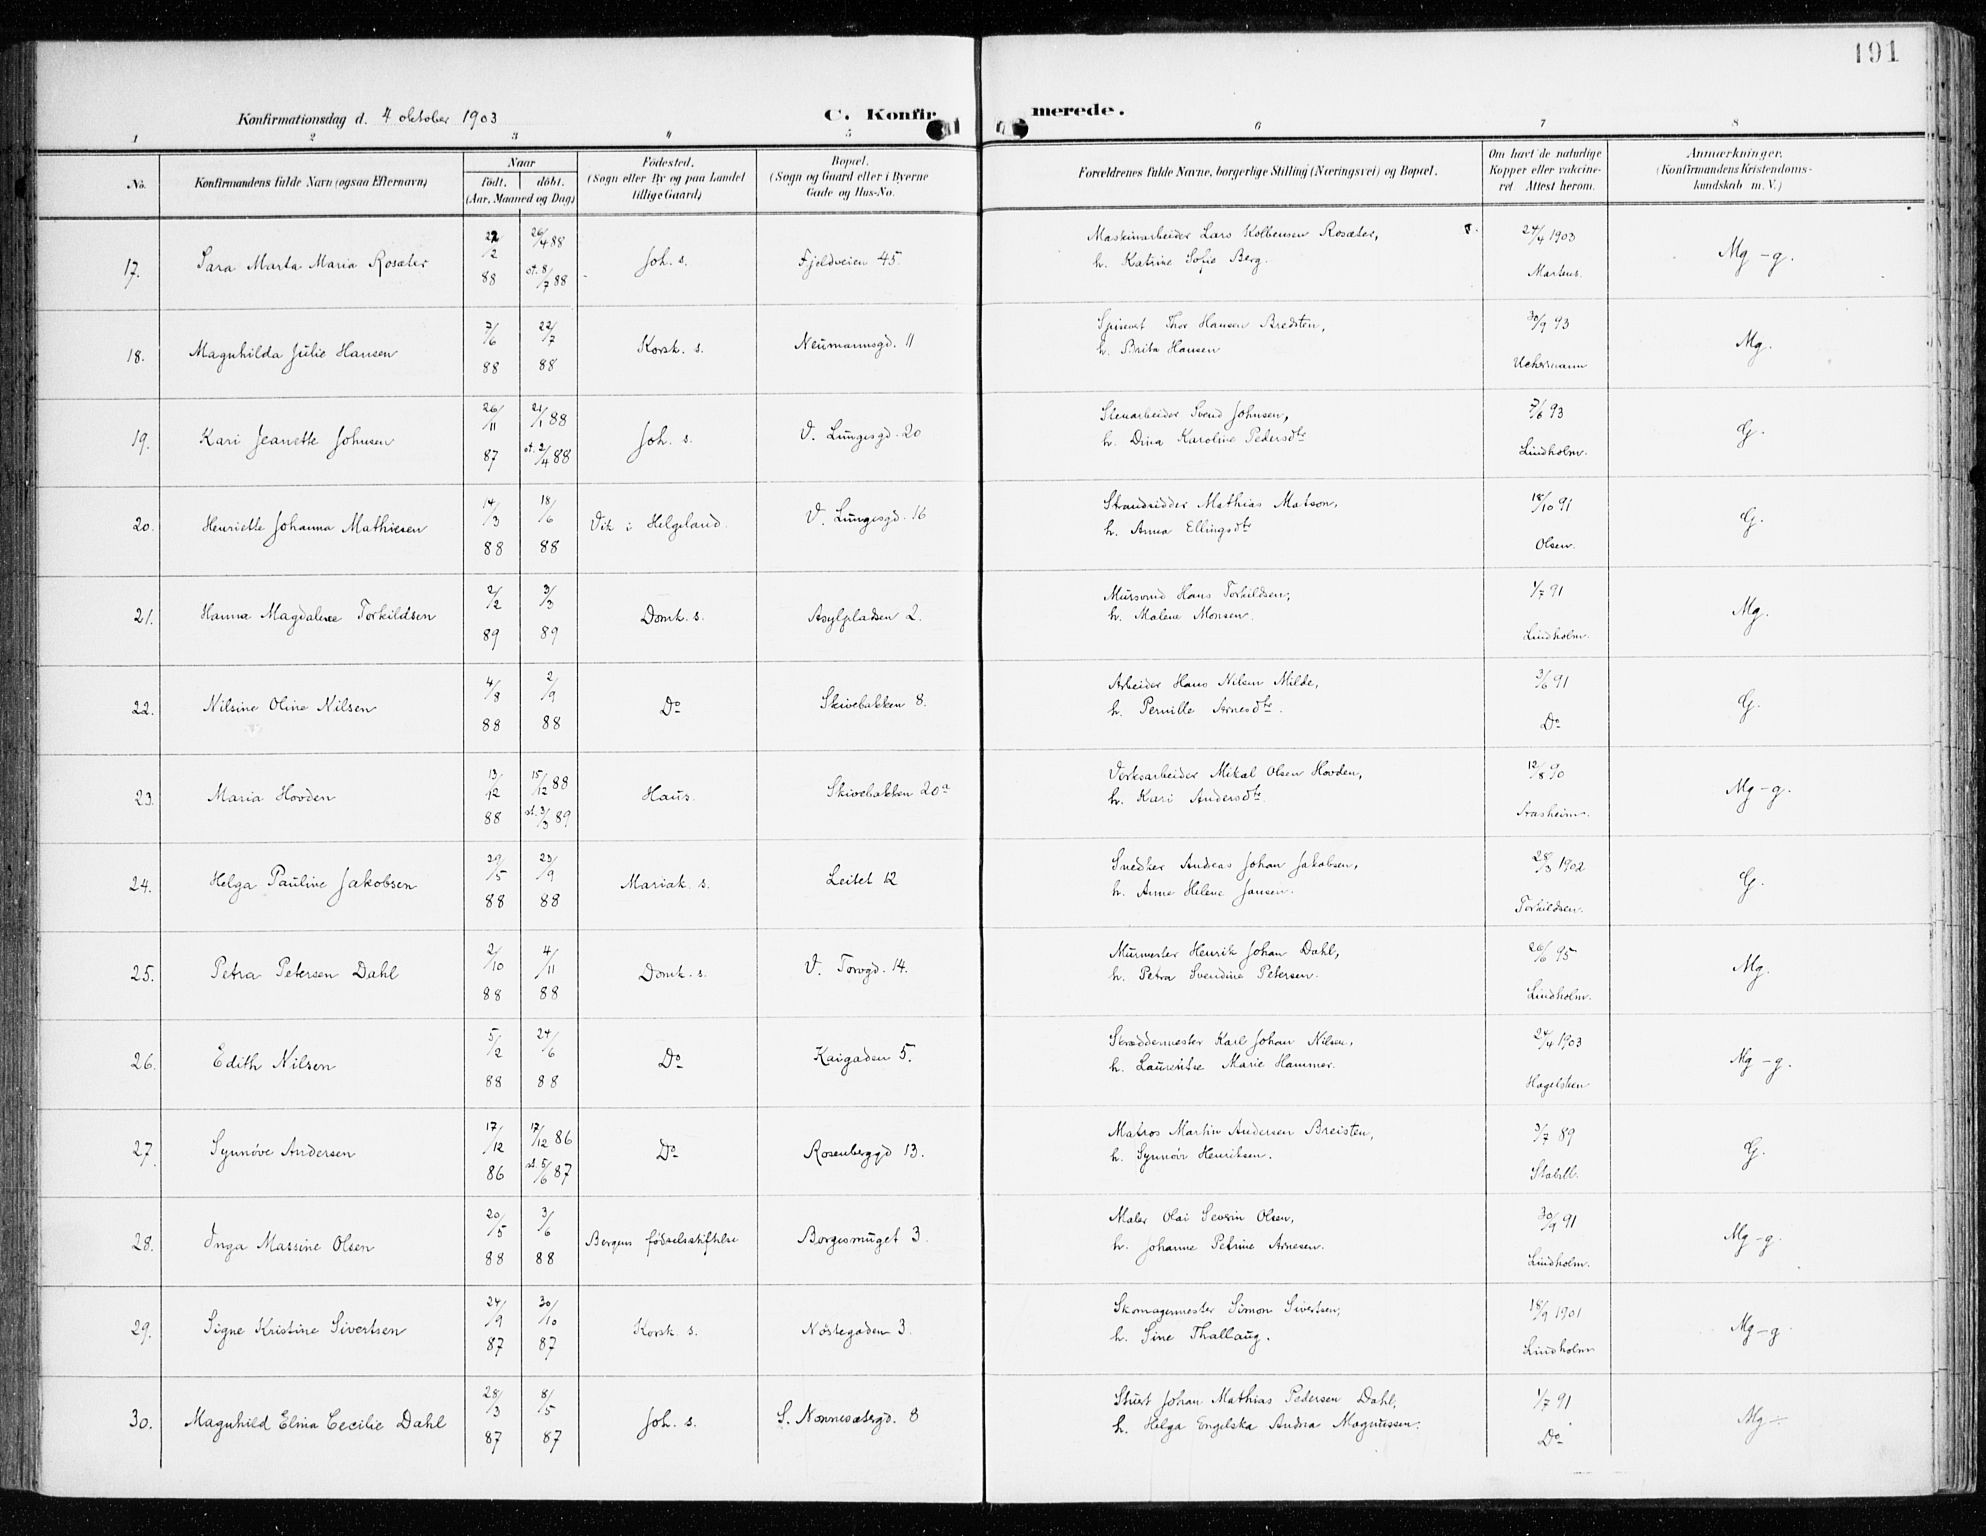 191
Konfirmationsdag d. 4 oktober 1903 C. Konfir merede.
1 2 3 4 5 6 7 8
No. Konfirmandens fulde Navn (ogsaa Efternavn) Naar født. døbt. (Aar, Maaned og Dag) Fødested. (Sogn eller By og paa Landet tillige Gaard) Bopæl. (Sogn og Gaard eller i Byerne Gade og Hus-No. Forældrenes fulde Navne, borgerlige Stilling (Næringsvei) og Bopæl. Om havt de naturlige Kopper eller vakcineret Attest herom. Anmærkninger. (Konfirmandens Kristendomskundskab m. V.)
17. Sara Marta Maria Rosæter 22/2 88 26/4 88 st. 8/7 88 Joh. s. Fjeldveien 45. Maskinarbeider Lars Kolbensen Rosæter,
h. Katrine Sofie Berg. 24/4 1903 Martens. Mg - g.
18. Magnhilda Julie Hansen 7/6 88 22/7 88 Korsk. s. Neumannsgd. 11 Spisevert Thor Hansen Bredsten,
h. Brita Hansen 30/9 93 Uchermann Mg.
19. Kari Jeanette Johnsen 26/11 87 21/1 88 st. 2/4 88 Joh. s. V. Lungesgd. 20 Stenarbeider Svend Johnsen,
h. Dina Karoline Pedersdtr 7/6 93 Lindholm. G.
20. Henriette Johanna Mathiesen 14/3 88 18/6 88 Vik i Helgeland. V. Lungesgd. 16 Strandsidder Mathias Matson,
h. Anna Ellingsdtr 18/10 91 Olsen. G.
21. Hanna Magdalene Torkildsen 2/2 89 3/3 89 Domk. s. Asylpladsen 2. Mursvend Hans Torkildsen,
h. Malene Monsen. 1/7 91 Lindholm. Mg.
22. Nilsine Oline Nilsen 4/8 88 2/9 88 Do Skivebakken 8. Arbeider Hans Nilsen Milde,
h. Pernille Arnesdtr. 3/6 91 Do G.
23. Maria Hovden 13/12 88 15/12 88 st. 3/3 89 Haus. Skivebakken 20a Verksarbeider Mikal Olsen Hovden,
h. Kari Andersdtr. 12/8 90 Aasheim. Mg - g.
24. Helga Pauline Jakobsen 29/5 88 23/9 88 Mariak. s. Leitet 12 Snedker Andreas Johan Jakobsen,
h. Anne Helene Jansen. 28/3 1902 Torkildsen. G.
25. Petra Petersen Dahl 2/10 88 4/11 88 Domk. s. V. Torvgd. 14. Murmester Henrik Johan Dahl,
h. Petra Svendine Petersen. 26/6 95 Lindholm. Mg.
26. Edith Nilsen 5/2 88 24/6 88 Do Kaigaden 5. Skræddermester Karl Johan Nilsen,
h. Laurentse Marie Hammer. 24/4 1903 Hagelsteen Mg - g.
27. Synnöve Andersen 17/12 86 17/12 86 st. 5/6 87 Do Rosenberggd 13. Matros Martin Andersen Breisten,
h. Synnöv Henriksen. 3/7 89 Stabell. G.
28. Inga Massine Olsen 20/5 88 3/6 88 Bergens fødselsstiftelse Borgesmuget 3. Maler Olai Severin Olsen,
h. Johanne Petrine Arnesen. 30/9 91 Lindholm. Mg - g.
29. Signe Kristine Sivertsen 24/9 87 30/10 87 Korsk. s. Nöstegaden 3. Skomagermester Simon Sivertsen,
h. Sine Thallaug. 18/9 1901 Lindholm Mg - g
30. Magnhild Elina Cecilie Dahl 28/3 87 8/5 87 Joh. s. S. Nonnesætergd. 8 Stuert Johan Mathias Pedersen Dahl,
h. Helga Engelska Andrea Magnussen. 1/7 91 Do Mg -